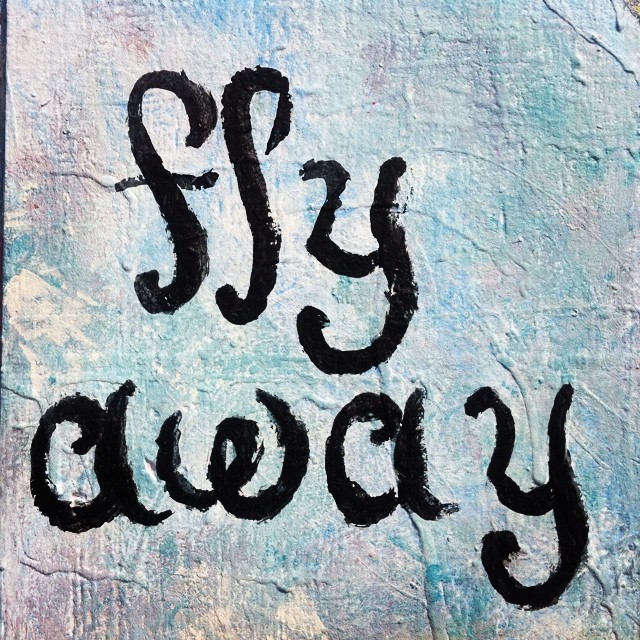 fly
away